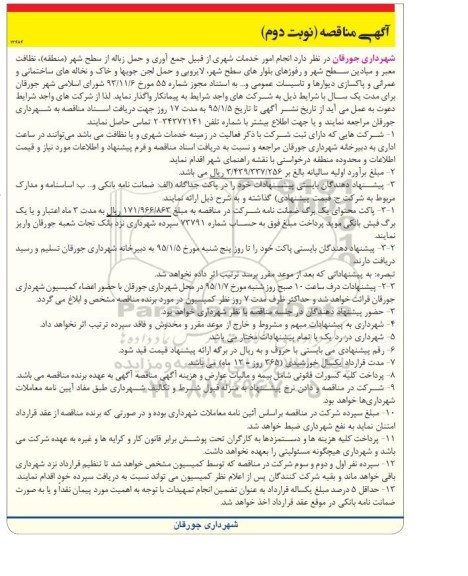 آگهی مناقصه (نوبت دوم)
شهرداری جورقان در نظر دارد انجام امور خدمات شهری از قبیل جمع آوری و حمل زباله از سطح شهر (منطقه)، نظافت
معبر و میادین سـطح شهر و رفوژهای بلوار های سطح شهر، لایروبی و حمل لجن جویها و خاک و نخاله های ساختمانی و
عمرانی و پاکسازی دیوارها و تاسیسات عمومی و... به استناد مجوز شماره ۵۵ مورخ ۹۳/۱۱/۶ شورای اسلامی شهر جورقان
برای مدت یک سال با شرایط ذیل به شرکت های واجد شرایط به پیمانکار واگذار نماید. لذا از شرکت های واجد شرایط
دعوت به عمل می آید از تاریخ نشر آگهی تا تاریخ ۹۵/۱/۵ به مدت ۱۷ روز جهت دریافت اسناد مناقصه به شهرداری
جورقان مراجعه نمایند و یا جهت اطلاع بیشتر با شماره تلفن ۳۴۳۷۲۱۴۱-۲ تماس حاصل نمایند.
۱- شرکت هایی که دارای ثبت شرکت با ذکر فعالیت در زمینه خدمات شهری و یا نظافت می باشد می‌توانند در ساعت
اداری به دبیرخانه شهرداری جورقان مراجعه و نسبت به دریافت اسناد مناقصه و فرم پیشنهاد و اطلاعات مورد نیاز و قیمت
اطلاعات و محدوده منطقه درخواستی با نقشه راهنمای شهر اقدام نماید.
۲- مبلغ برآورد اولیه سالیانه بالغ بر ۳/۴۳۹/۳۳۷/۲۵۶ ریال می باشد.
۳- پیشنهاد دهندگان بایستی پیشنهادات خود را در پاکت جداگانه (الف: ضمانت نامه بانکی و... ب: اساسنامه و مدارک
مربوط به شرکت ج: قیمت پیشنهادی) گذاشته و به شرح ذیل ارائه نمایند.
۳-۱- پاکت محتوای یک برگ ضمانت نامه شرکت در مناقصه به مبلغ ۱۷۱/۹۶۶/۸۶۳ ریال به مدت ۳ ماه اعتبار و یا یک
برگ فیش بانکی موید پرداخت مبلغ فوق به حساب شماره ۷۳۷۹۱ سپرده شهرداری نزد بانک تجات شعبه جورقان واریز
نمایند.
۳-۲- پیشنهاد دهندگان بایستی پاکت خود را تا روز پنج شنبه مورخ ۹۵/۱/۵ به دبیرخانه شهرداری جورقان تسلیم و رسید
دریافت دارند.
تبصره: به پیشنهاداتی که بعد از موعد مقرر برسد ترتیب اثر داده نخواهد شد.
۲-۳- پیشنهادات درف ساعت ۱۰ صبح روز شنبه مورخ ۹۵/۱/۷ در محل شهرداری جورقان با حضور اعضاء کمیسیون شهرداری
جورقان قرائت خواهد شد و حداکثر ظرف مدت ۷ روز نظر کمیسیون در مورد برنده مناقصه مشخص و ابلاغ می گردد.
۳- حضور پیشنهاد دهندگان در جلسه مناقصه با نظر شهرداری خواهد بود.
۴- شهرداری به پیشنهادات مبهم و مشروط و خارج از موعد مقرر و مخدوش و فاقد سپرده ترتیب اثر نخواهد داد.
۵- شهرداری در رد یک یا تمام پیشنهادات مختار می باشد.
۶- رقم پیشنهادی می بایستی با حروف و به ریال در برگه ارائه پیشنهاد قیمت قید شود.
۷- مدت قرارداد یکسال خورشیدی (۳۶۵ روز - ۱۲ ماه) می باشد.
۸- پرداخت کلیه کسورات قانونی شامل بیمه و مالیات عوارض و هزینه آگهی مناقصه آگهی به عهده برنده مناقصه می باشد.
۹- شرکت در مناقصه و دادن نرخ پیشنهاد به منزله قبول شرط و تکالیف شهرداری طبق مفاد آیین نامه معاملات
شهرداری‌ها خواهد بود.
۱۰- مبلغ سپرده شرکت در مناقصه براساس آئین نامه معاملات شهرداری بوده و در صورتی که برنده مناقصه از عقد قرارداد
امتنان نماید به نفع شهرداری ضبط خواهد شد.
۱۱- پرداخت کلیه هزینه ها و دستمزدها به کارگران تحت پوشش برابر قانون کار و کرایه ها و غیره به عهده شرکت می
باشد و شهرداری هیچگونه مسئولیتی را بعهده نخواهد داشت.
۱۲- سپرده نفر اول و دوم و سوم شرکت در مناقصه که توسط کمیسیون مشخص خواهد شد تا تنظیم قرارداد نزد شهرداری
باقی خواهد ماند و بقیه شرکت کنندگان پس از اعلام نظر کمیسیون می تواند نسبت به دریافت سپرده خود اقدام نمایند.
۱۳- حداقل ۵ درصد مبلغ یکساله قرارداد به عنوان تضمین انجام تعهدات با توجه به اهمیت مورد پیمان نقداً و یا به صورت
ضمانت نامه بانکی در موقع عقد قرارداد اخذ خواهد شد.
شهرداری جورقان